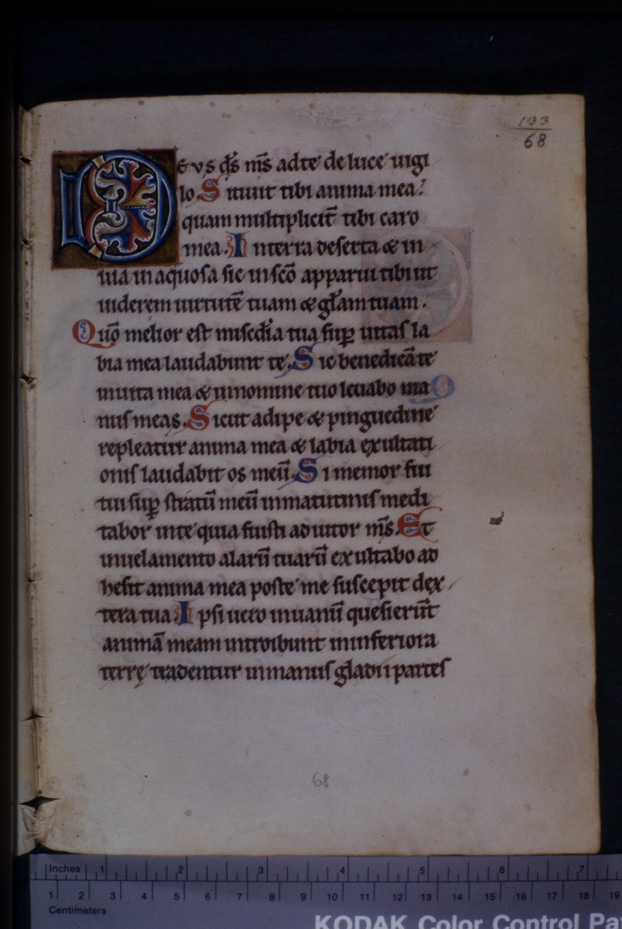 133
68
Deus ds̄ ms̄ ad te de luce uigi
lo. Sitiuit tibi anima mea:
quam multiplicit̄ tibi caro
mea. In terra deserta & in
uia inaquosa sic in scō apparui tibi ut
uiderem uirtutē tuam & glām tuam.
Quō melior est misedia tua sup uitas la
bia mea laudabunt te. Sic benedicā te
in uita mea & in nomine tuo leuabo ma
nus meas. Sicut adipe & pinguedine
repleatur anima mea & labia exultati
onis laudabit os meū. Si memor fui
tui sup stratū meū in matutinis medi
tabor in te quia fuisti adiutor ms̄. Et
in uelamento alarū tuarū exultabo ad
hesit anima mea post te me suscepit dex
tera tua. Ipsi uero in uanū quesierūt
animā meam introibunt in inferiora
terrę tradentur in manus gladii partes
68
Inches 1 2 3 4 5 6 7
1 2 3 4 5 6 7 8 9 10 11 12 13 14 15 16 17 18 19
Centimeters
KODAK Color Control Pat